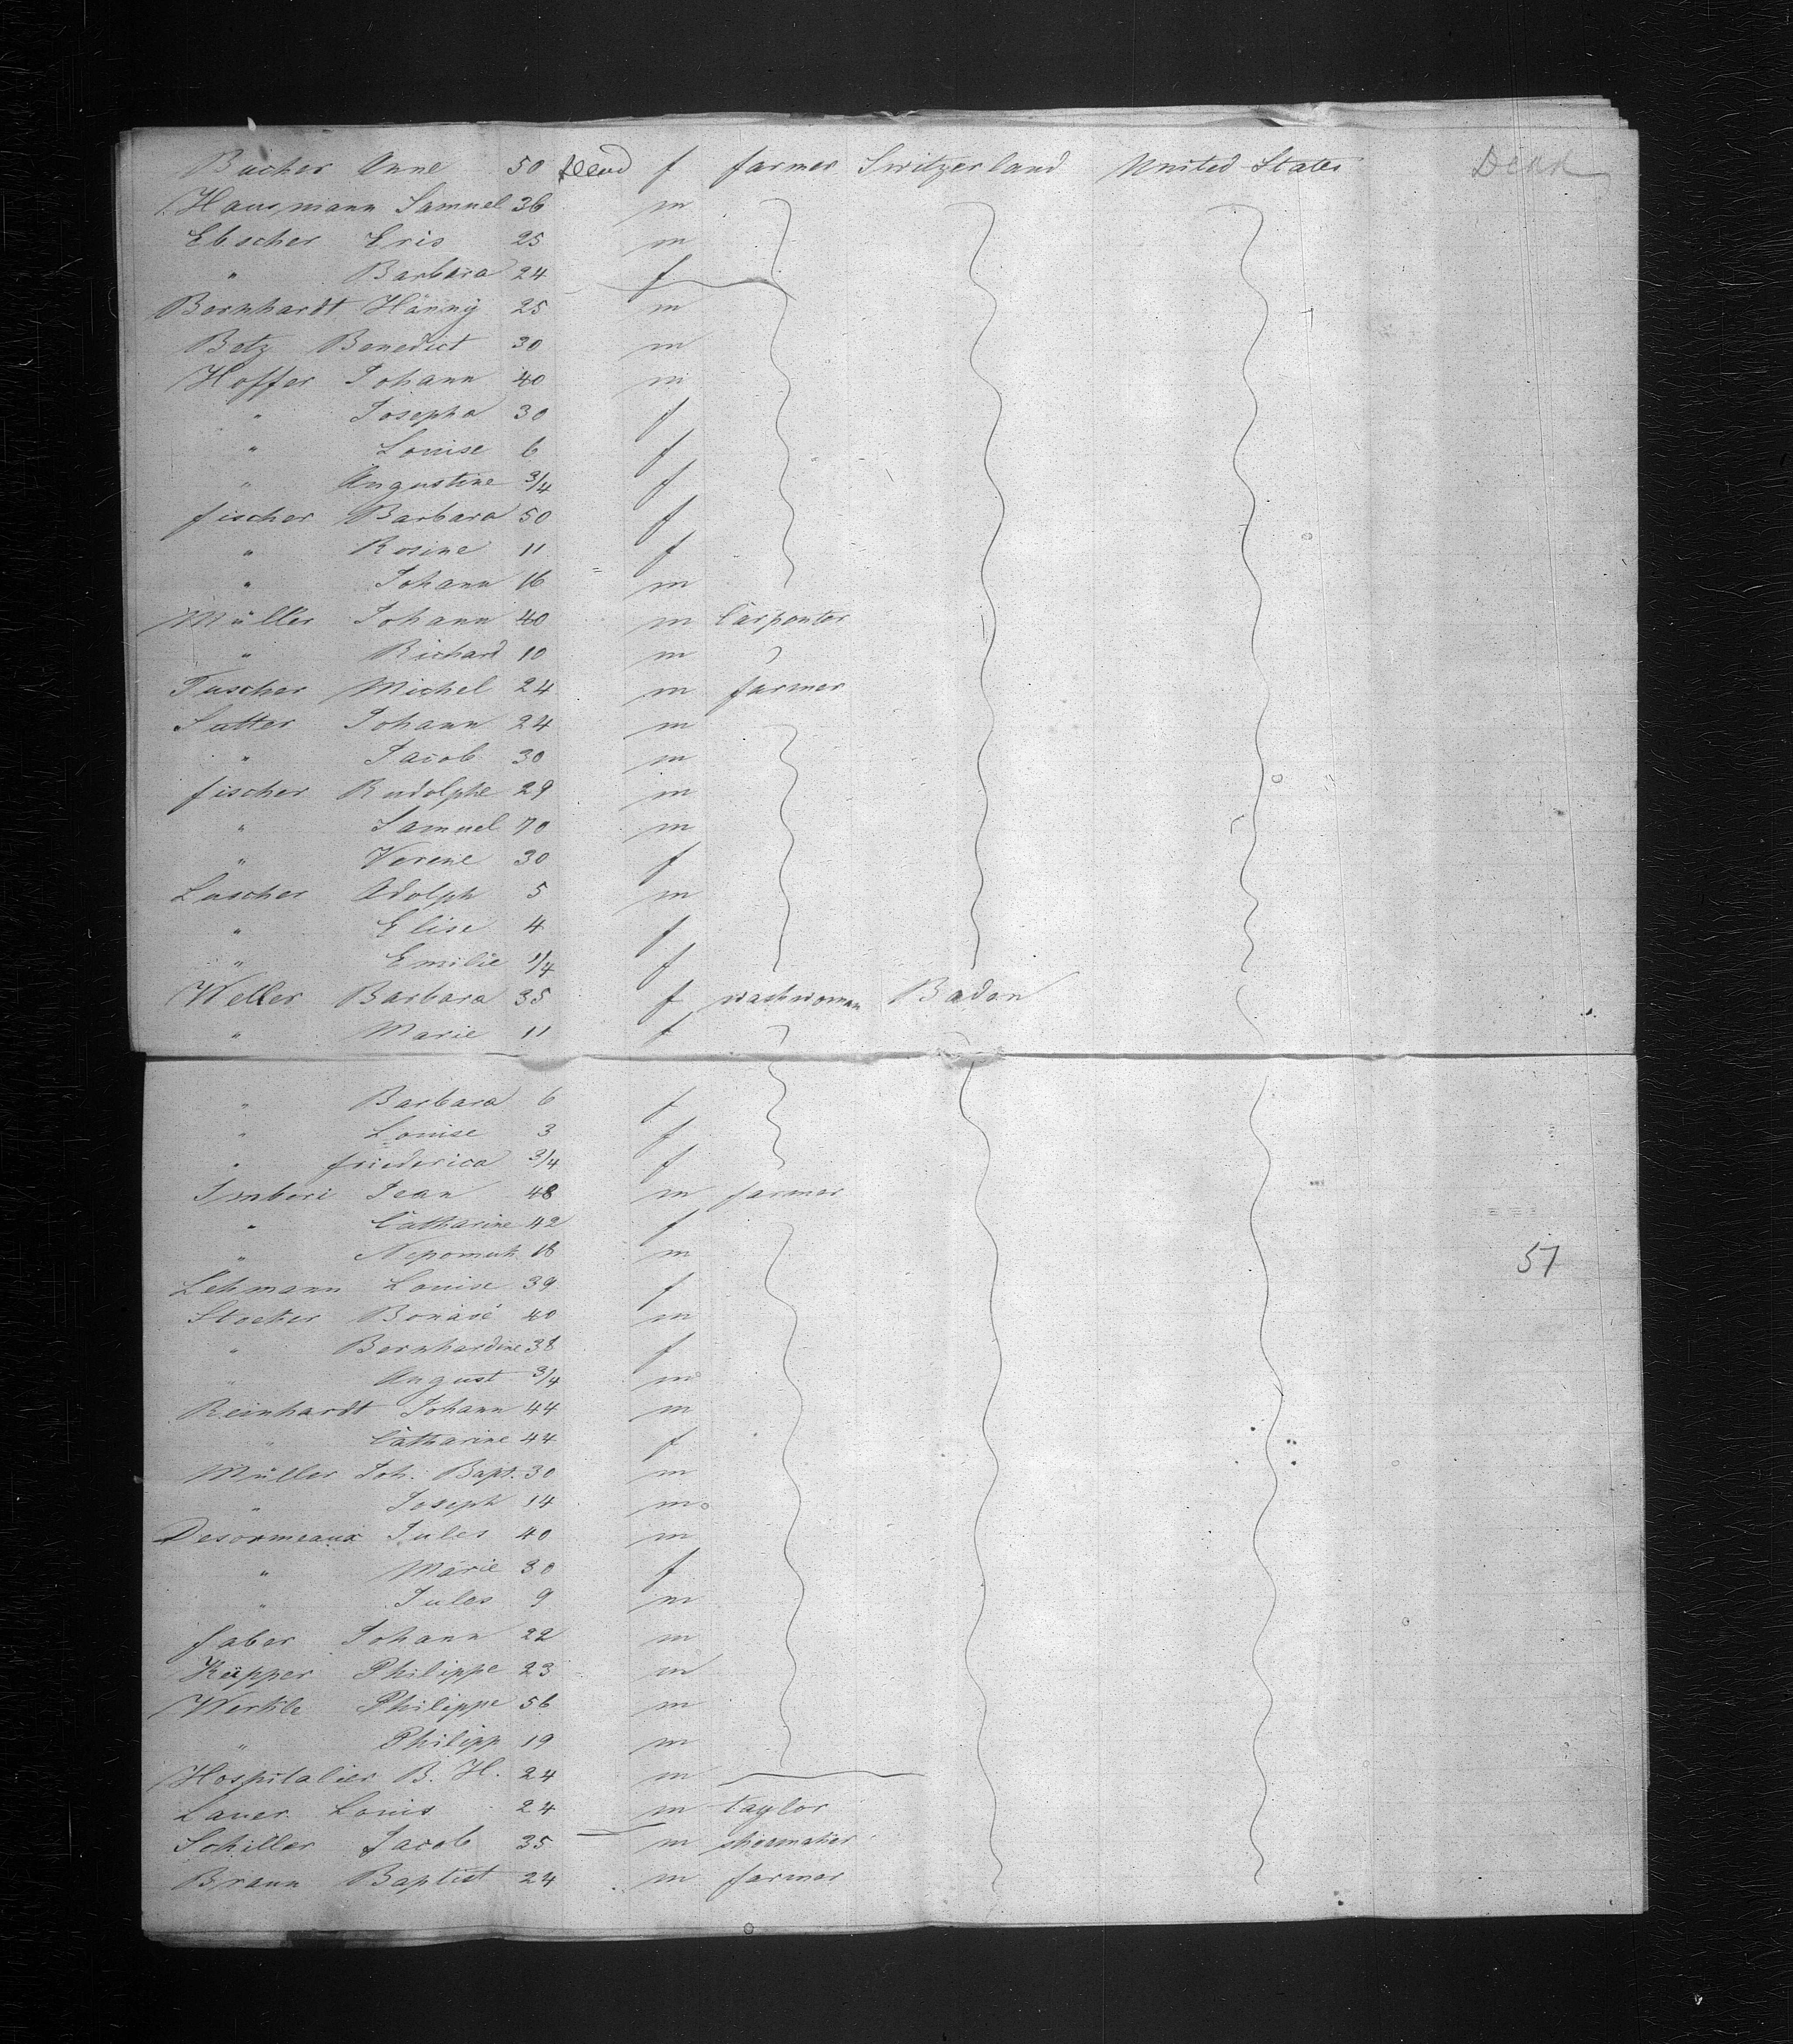 Bucher Anne 50 dead f farmer Switzerland United States Dead
Hausmann Samuel 36 m
Ebscher Eris 25 m
" Barbara 24 f
Bernhardt Hänny 25 m
Betz Benedict 30 m
Hoffer Johann 40 m
" Josepha 30 f
" Louise 6 f
" Augustine 3/4 f
fischer Barbara 50 f
" Rosine 11 f
" Johann 16 m
Müller Johann 40 m Carpenter
" Richard 10 m
Tuscher Michel 24 m farmer
Sutter Johann 24 m
" Jacob 30 m
fischer Rudolphe 29 m
" Samuel 70 m
" Verene 30 f
Luscher Adolph 5 m
" Elise 4 f
" Emilie 1/4 f
Weller Barbara 35 f washwoman Baden
" Marie 11 f
" Barbara 6 f
" Louise 3 f
" friederica 3/4 f
Imberi Jean 48 m farmer
" Catharine 42 f
" Nepomuk 18 m 57
Lehmann Louise 39 f
Stocker Bonasé 40 m
" Bernhardine 38 f
" August 3/4 m
Reinhardt Johann 44 m
" Catharine 44 f
Müller Joh. Bapt. 30 m
" Joseph 14 m
Desormeaux Jules 40 m
" Marie 30 f
" Jules 9 m
faber Johann 22 m
Küpper Philippe 23 m
Wertile Philippe 56 m
" Philipp 19 m
Hospitalier B. H. 24 m
Lauer Louis 24 m taylor
Schiller Jacob 35 m shoemaker
Braun Baptist 24 m farmer